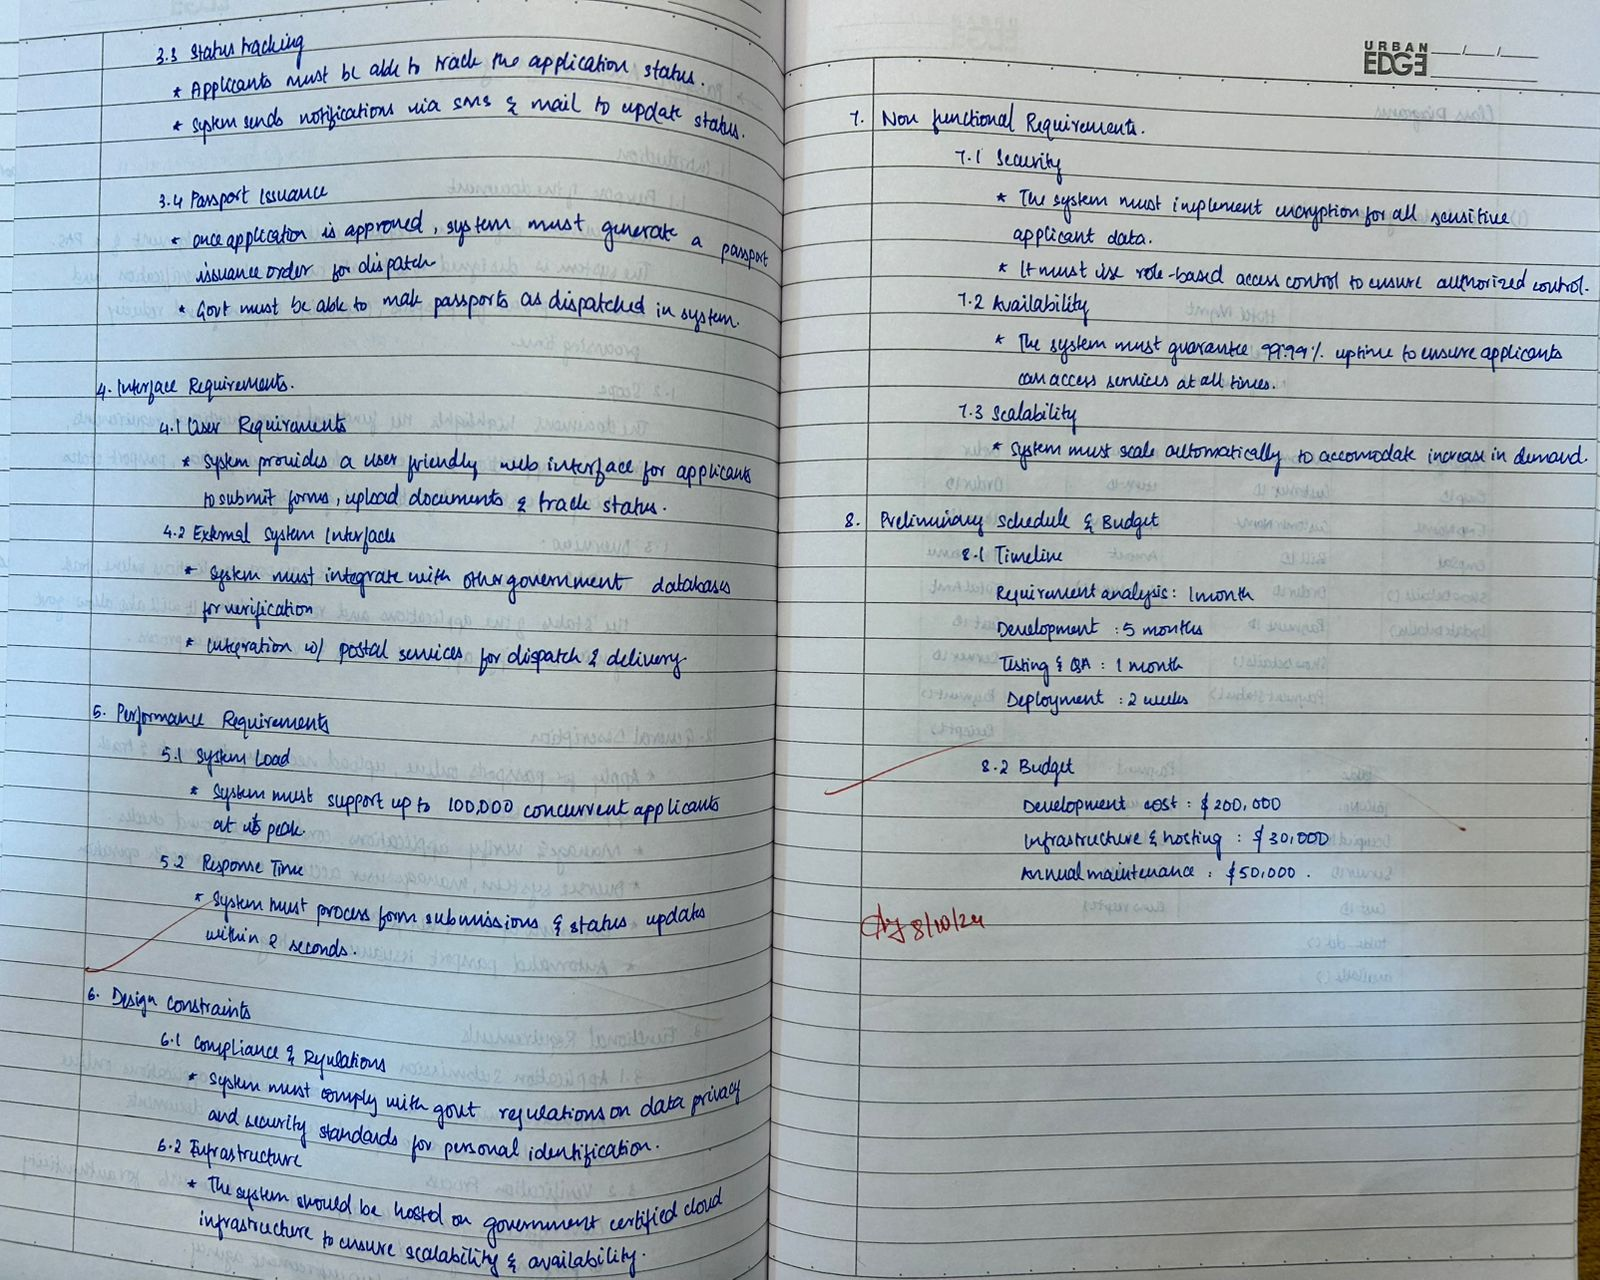 3.3 Status tracking
* Applicants must be able to track the application status.
* System sends notifications via SMS & mail to update status.
3.4 Passport Issuance
* once application is approved, system must generate a passport
issuance order for dispatch
* Govt must be able to mak passports as dispatched in system.
4. Interface Requirements.
4.1 User Requirements
* System provides a user friendly web interface for applicants
to submit forms, upload documents & track status.
4.2 External System Interfaces
* System must integrate with other government databases
for verification
* integration w/ postal services for dispatch & delivery
5. Performance Requirements
5.1 System Load
* System must support up to 100,000 concurrent applicants
at its peak.
5.2 Response Time
* System must process form submissions & status updates
within 2 seconds.
6. Design constraints
6.1 Compliance & Regulations
* System must comply with govt regulations on data privacy
and security standards for personal identification.
6.2 Infrastructure
* The system should be hosted on government certified cloud
infrastructure to ensure scalability & availability.
URBAN
EDGE
7. Non functional Requirements.
7.1 Security
* The system must implement encryption for all sensitive
applicant data.
* It must use role-based access control to ensure authorized control.
7.2 Availability
* The system must guarantee 99.99% uptime to ensure applicants
can access services at all times.
7.3 Scalability
* System must scale automatically to accomodate increase in demand.
8. Preliminary Schedule & Budget
8.1 Timeline
Requirement analysis: 1 month
Development : 5 months
Testing & QA : 1 month
Deployment : 2 weeks
8.2 Budget
Development cost : $200,000
Infrastructure & hosting : $30,000
Annual maintenance : $50,000.
8/10/24